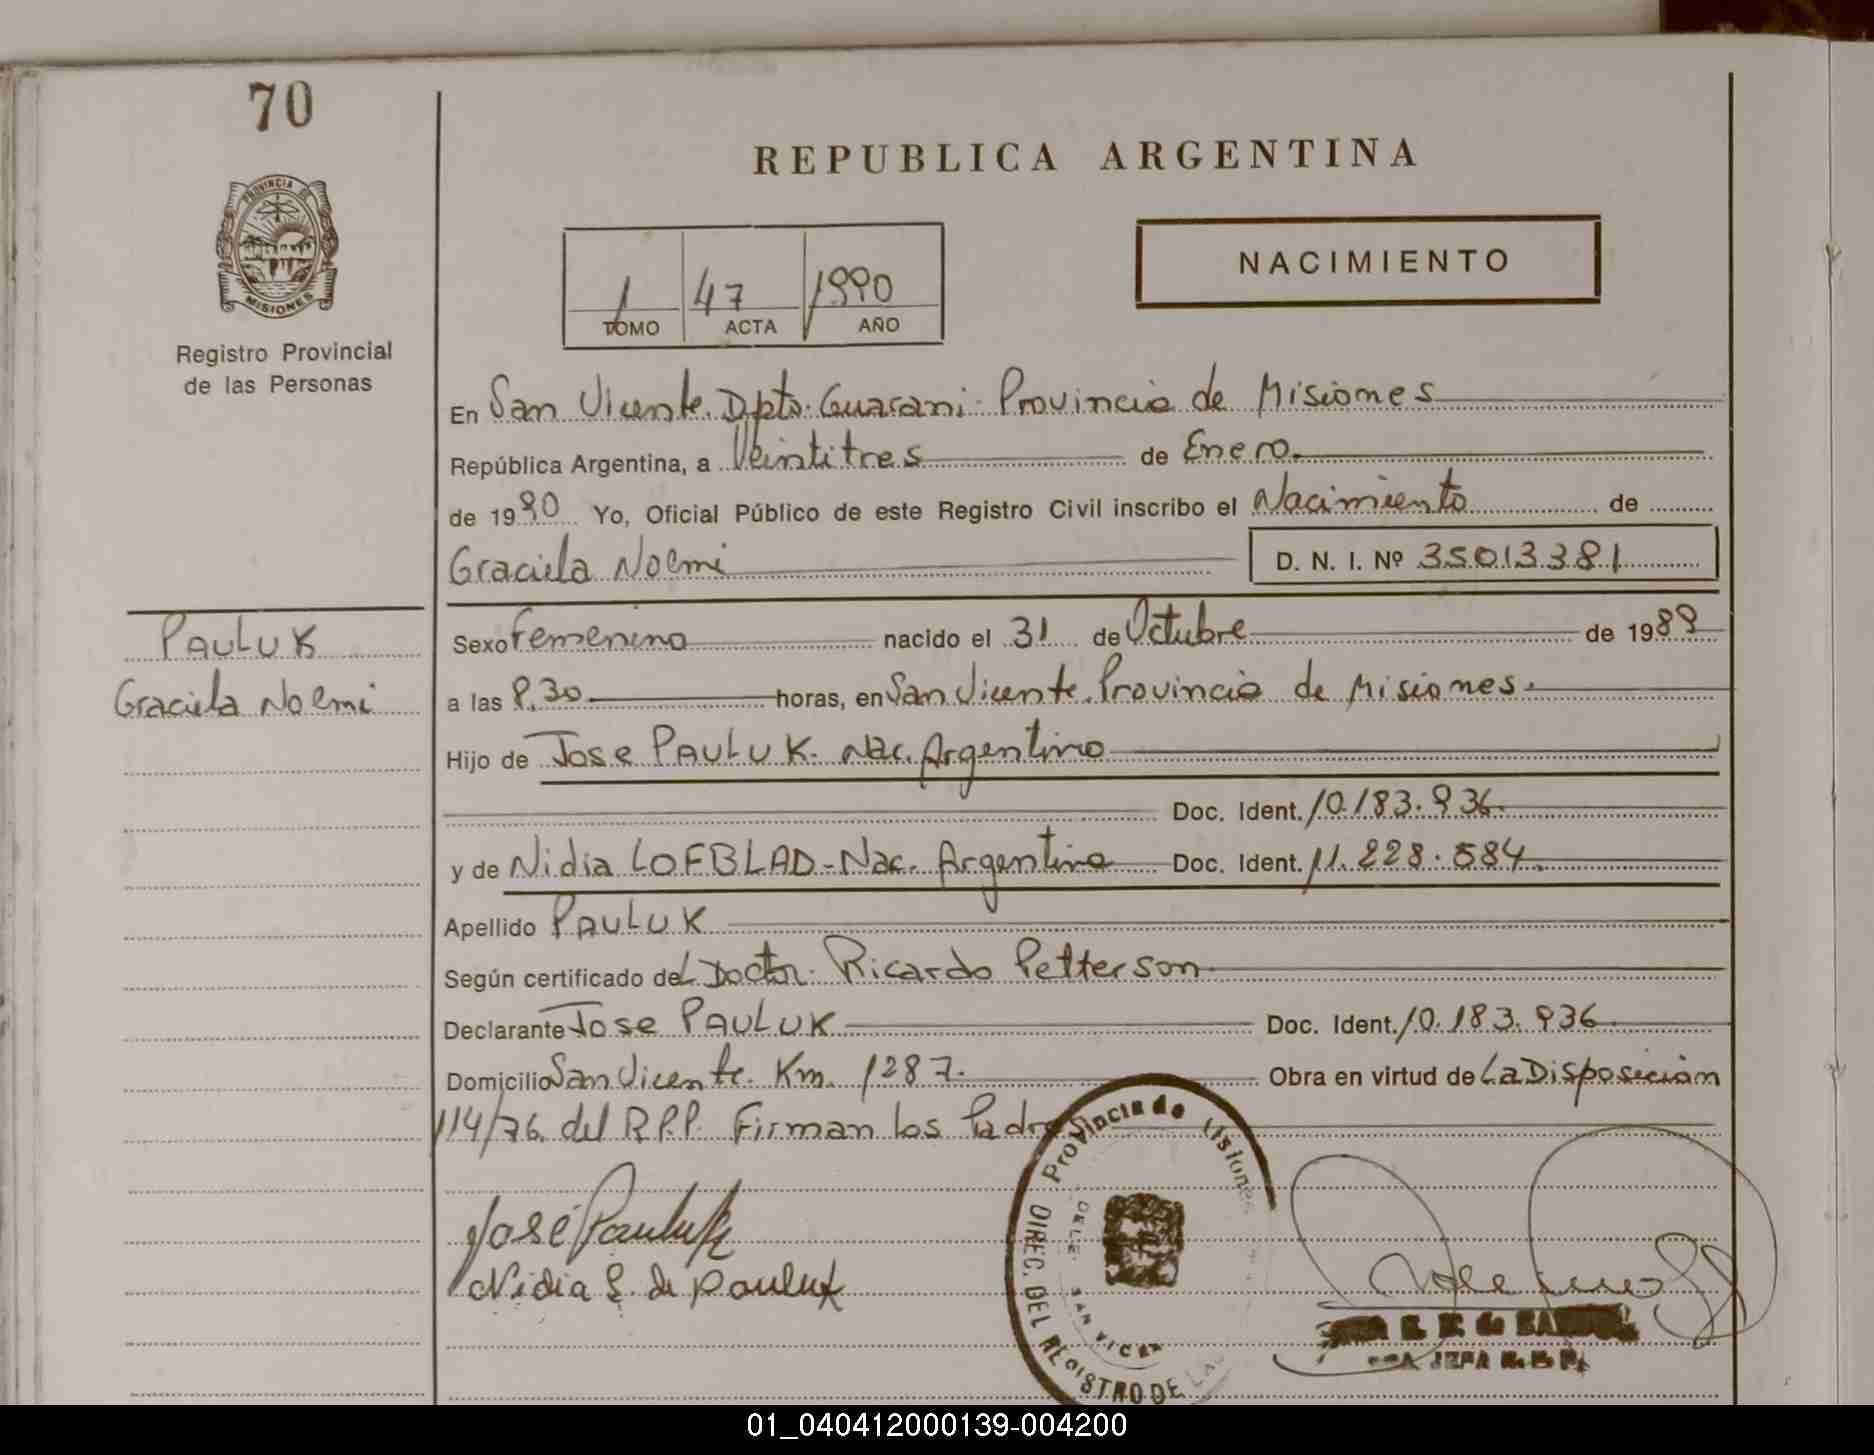 70
REPUBLICA ARGENTINA
PROVINCIA DE
MISIONES
NACIMIENTO
1 47 1990
TOMO ACTA AÑO
Registro Provincial
de las Personas
En San Vicente. Dpto. Guarani - Provincia de Misiones
República Argentina, a Veintitres de Enero.
de 1990 Yo, Oficial Público de este Registro Civil inscribo el Nacimiento de
Graciela Noemi D. N. I. Nº 35013381
PAULUK
Graciela Noemi
Sexo Femenino nacido el 31 de Octubre de 1989
a las 8.30 horas, en San Vicente. Provincia de Misiones.
Hijo de Jose PAULUK. Nac. Argentino
Doc. Ident. 10.183.936.
y de Nidia LOFBLAD - Nac. Argentina Doc. Ident. 11.228.584.
Apellido PAULUK
Según certificado del Doctor. Ricardo Petterson
Declarante Jose PAULUK Doc. Ident. 10.183.936
Domicilio San Vicente. Km. 1287. Obra en virtud de La Disposición
114/76 del R.P.P. Firman los Padres
José Pauluk
Nidia L. de Pauluk
Provincia de Misiones
DIREC. DEL REGISTRO DE LAS
DELE. SAN VICEN
JEFA
01_040412000139-004200